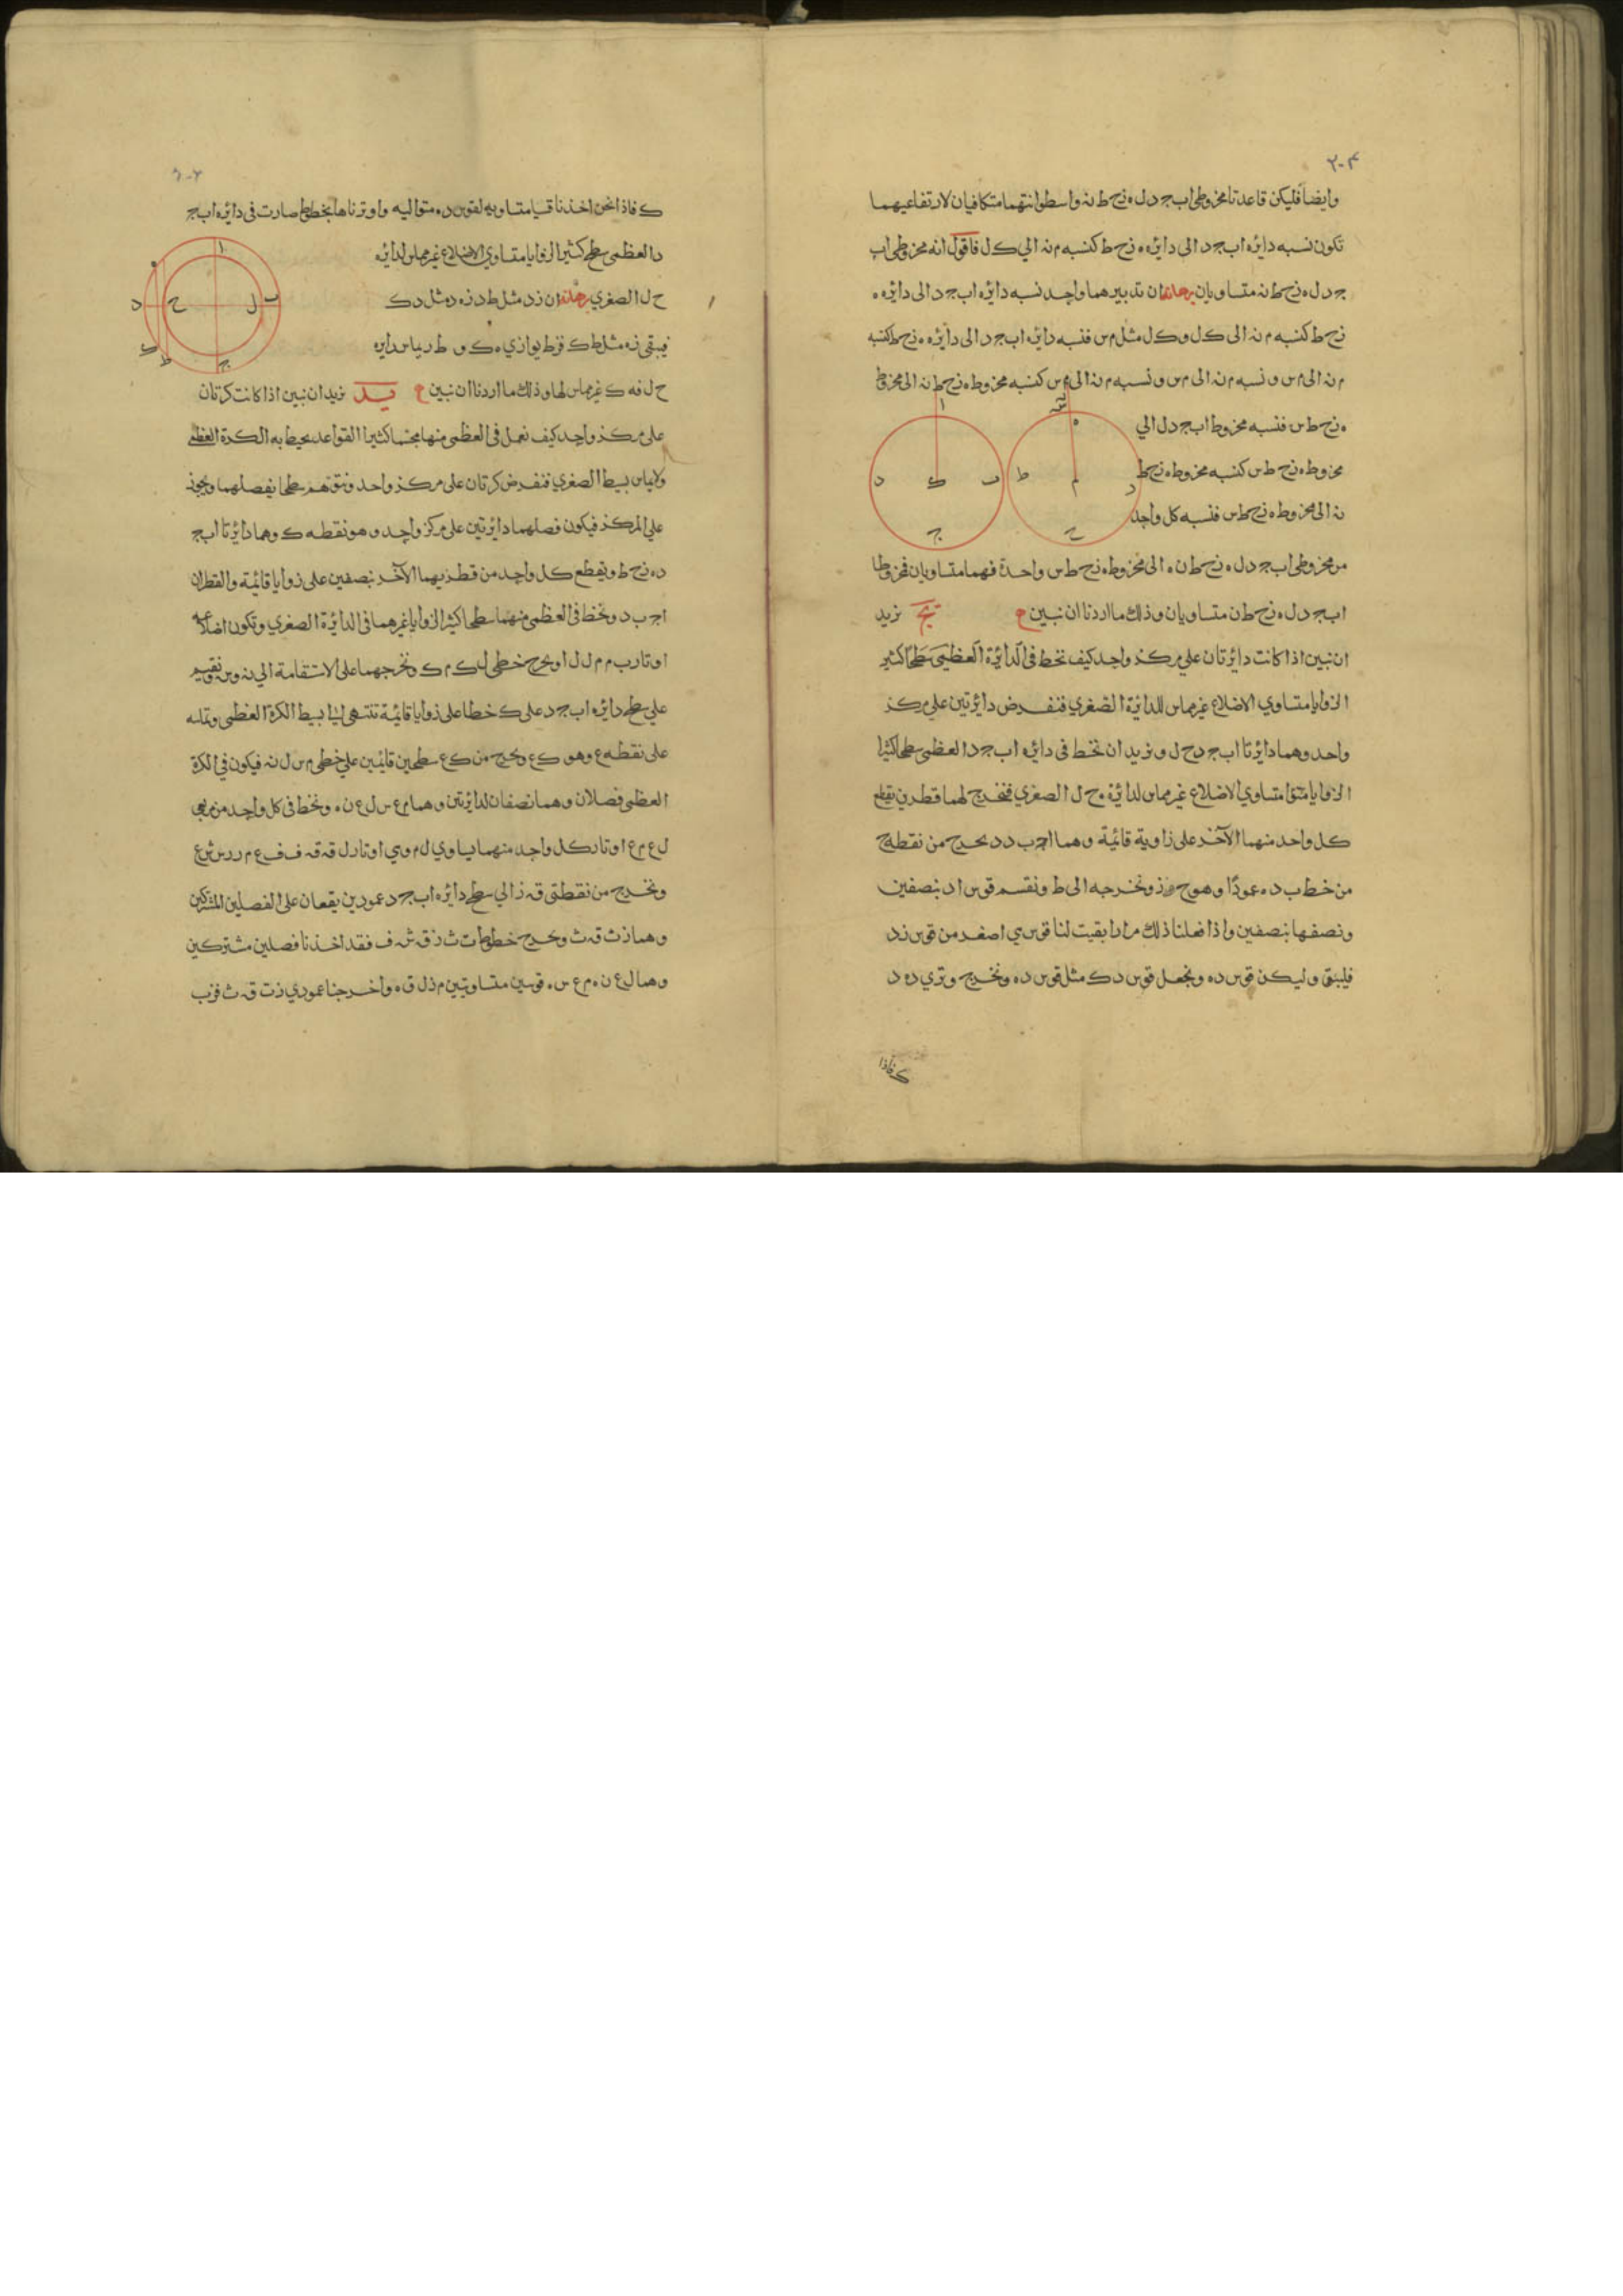 ٢٠٣
وايضا فليكن قاعدتا مخروطي اب جد ل ه زح ط نه واسطوانتهما متكافيان لارتفاعيهما
تكون نسبه دايره اب جد الى دايره ه زح ط كنسبه م نه الي ك ل فاقول انه مخروطي اب
جد ل ه زح ط نه متساويان برهانه ان تدبيرهما واحد نسبه دايره اب جد الى دايره ه
زح ط كنسبه م نه الى ك ل و ك ل مثل م س فنسبه دايره اب جد الى دايره ه زح ط كنسبه
م نه الى م س ونسبه م نه الى م س ونسبه م نه الى م س كنسبه مخروط ه زح ط نه الى مخروط
ه زح ط س فنسبه مخروط اب جد ل الي
مخروط ه زح ط س كنسبه مخروط ه زح ط
نه الى مخروط ه زح ط س فنسبه كل واحد
من مخروطي اب جد ل ه زح ط ن ه الى مخروط ه زح ط س واحدة فهما متساويان فمخروطا
اب جد ل ه زح ط ن متساويان وذلك ما اردنا ان نبين ع يج نريد
ان نبين اذا كانت دايرتان علي مركز واحد كيف نخط في الدايرة العظمي سطحا كثير
الزوايا متساوي الاضلاع غير مماس للدايرة الصغري فنفرض دايرتين علي مركز
واحد وهما دايرتا اب جد ح ل ونريد ان نخط فى دايره اب جد العظمى سطحا كثير
الزوايا متساوي الاضلاع غير مماس لدايرة ح ل الصغري فنخرج لهما قطرين يقطع
كل واحد منهما الآخر على زاوية قائمة وهما اج ب د و نخرج من نقطة ح
من خط ب د ه عمودًا وهو ح ز ونخرجه الى ط ونقسم قوس اد بنصفين
ونصفها بنصفين واذا فعلنا ذلك مرارا بقيت لنا قوس هي اصغر من قوس زد
فليبق وليكن قوس ده ونجعل قوس دك مثل قوس ده ونخرج وتري ده د
ك فاذا
ا ب ج د ك
ه ط ح ز م س
ك فاذا نحن اخذنا قسيا متساويه لقوس ده متواليه واوترناها بخطوط صارت فى دايره اب ج
د العظمى سطح كثير الزوايا متساوي الاضلاع غير مماس لدايره
ح ل الصغري برهانه ان زد مثل ط د زه د مثل دك
فيبقى زه مثل ط ك فزط يوازي ه ك و ط ز يماس دايره
ح ل فه ك غير مماس لها وذلك ما اردنا ان نبين ع يد نريد ان نبين اذا كانت كرتان
على مركز واحد كيف نعمل فى العظمى منها مجسما كثير القواعد يحيط به الكرة العظمي
ولا يماس بسيط الصغري فنفرض كرتان على مركز واحد ونتوهم سطحا يفصلهما ويجوز
علي المركز فيكون فصلهما دايرتين على مركز واحد وهو نقطه ك وهما دايرتا اب ج
د ه زح ط ويقطع كل واحد من قطريهما الآخر بنصفين على زوايا قائمة والقطران
اج ب د ونخط فى العظمى منهما سطحا كثير الزوايا غير مماس فى الدايرة الصغري وتكون اضلاعه
اوتار ب م م ل ل ا ونخرج خطى ل ك م ك ونخرجهما على الاستقامة الي نه و س ونقيم
علي سطح دايره اب جد على ك خطا على زوايا قائمة تنتهى الى بسيط الكرة العظمى وتلقه
على نقطه ع وهو ك ع ونخرج من ك ع سطحين قائمين علي خطي م س ل نه فيكون في الكرة
العظمى فصلان وهما نصفان لدايرتين وهما م ع س ل ع ن ه ونخط فى كل واحد من ربعي
ل ع م ع اوتارا كل واحد منهما يساوي ل م وهي اوتار ل قه قه ف ف ع م ر ر ش ش ع
ونخرج من نقطتى قه ز الي سطح دايره اب جد عمودين يقعان على الفصلين المشتركين
وهما زت قه ث ونخرج خطوط ت ث ز قه ش ف فقد اخذنا فصلين مشتركين
وهما ل ع ن ه م ع س ه قوسين متساويتين م ز ل ق ه واخرجنا عمودي زت قه ث فزب
ا ب ج د ه ح ل ك ط